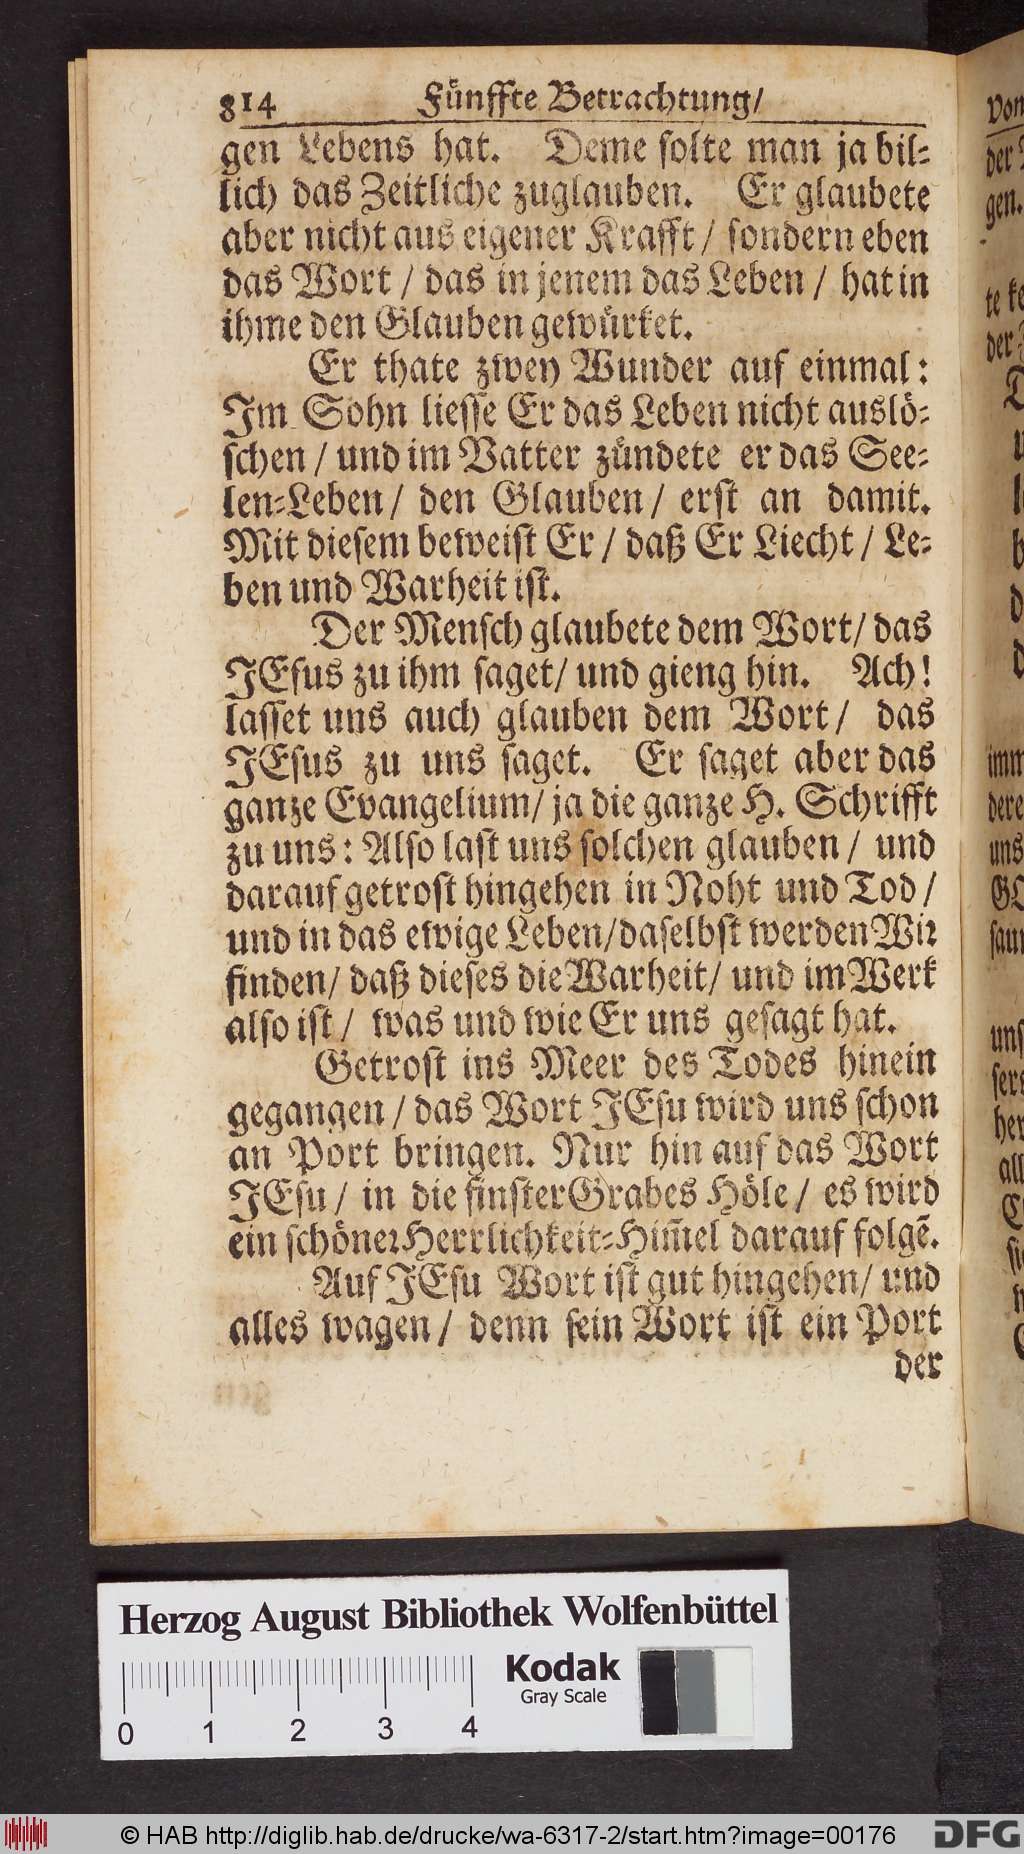 814 Fünffte Betrachtung/
gen Lebens hat. Deme solte man ja bil-
lich das Zeitliche zuglauben. Er glaubete
aber nicht aus eigener Krafft / sondern eben
das Wort / das in jenem das Leben / hat in
ihme den Glauben gewürket.
Er thate zwey Wunder auf einmal:
Im Sohn liesse Er das Leben nicht auslö-
schen / und im Vatter zündete er das See-
len-Leben / den Glauben / erst an damit.
Mit diesem beweist Er / daß Er Liecht / Le-
ben und Warheit ist.
Der Mensch glaubete dem Wort/ das
JEsus zu ihm saget/ und gieng hin. Ach!
lasset uns auch glauben dem Wort/ das
JEsus zu uns saget. Er saget aber das
ganze Evangelium/ ja die ganze H. Schrifft
zu uns: Also last uns solchen glauben / und
darauf getrost hingehen in Noht und Tod /
und in das ewige Leben/daselbst werden Wir
finden/ daß dieses die Warheit/ und im Werk
also ist / was und wie Er uns gesagt hat.
Getrost ins Meer des Todes hinein
gegangen / das Wort JEsu wird uns schon
an Port bringen. Nur hin auf das Wort
JEsu / in die finster Grabes Höle / es wird
ein schöner Herrlichkeit-Him̃el darauf folgẽ.
Auf JEsu Wort ist gut hingehen/ und
alles wagen / denn sein Wort ist ein Port
der
Von
der
gen.
te ke
der
imm
dere
uns
GO
uns
her
all
Herzog August Bibliothek Wolfenbüttel
Kodak
Gray Scale
0 1 2 3 4
© HAB http://diglib.hab.de/drucke/wa-6317-2/start.htm?image=00176
DFG